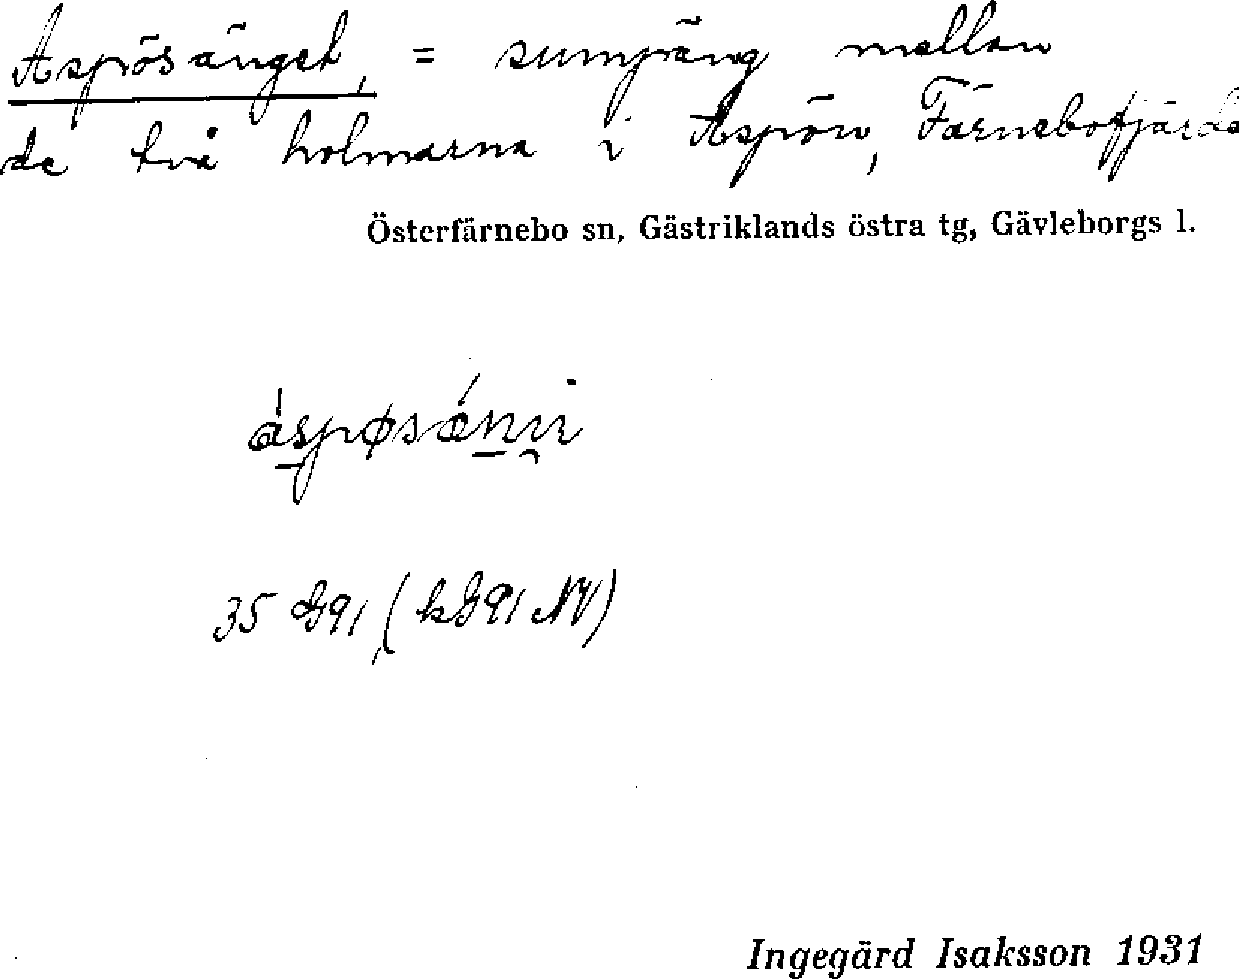 Aspösänget, = sumpäng mellan
de två holmarna i Aspön, Färnebofjärde
Österfärnebo sn, Gästriklands östra tg, Gävleborgs l.
35 G91 (kG91 NV)
Ingegärd Isaksson 1931